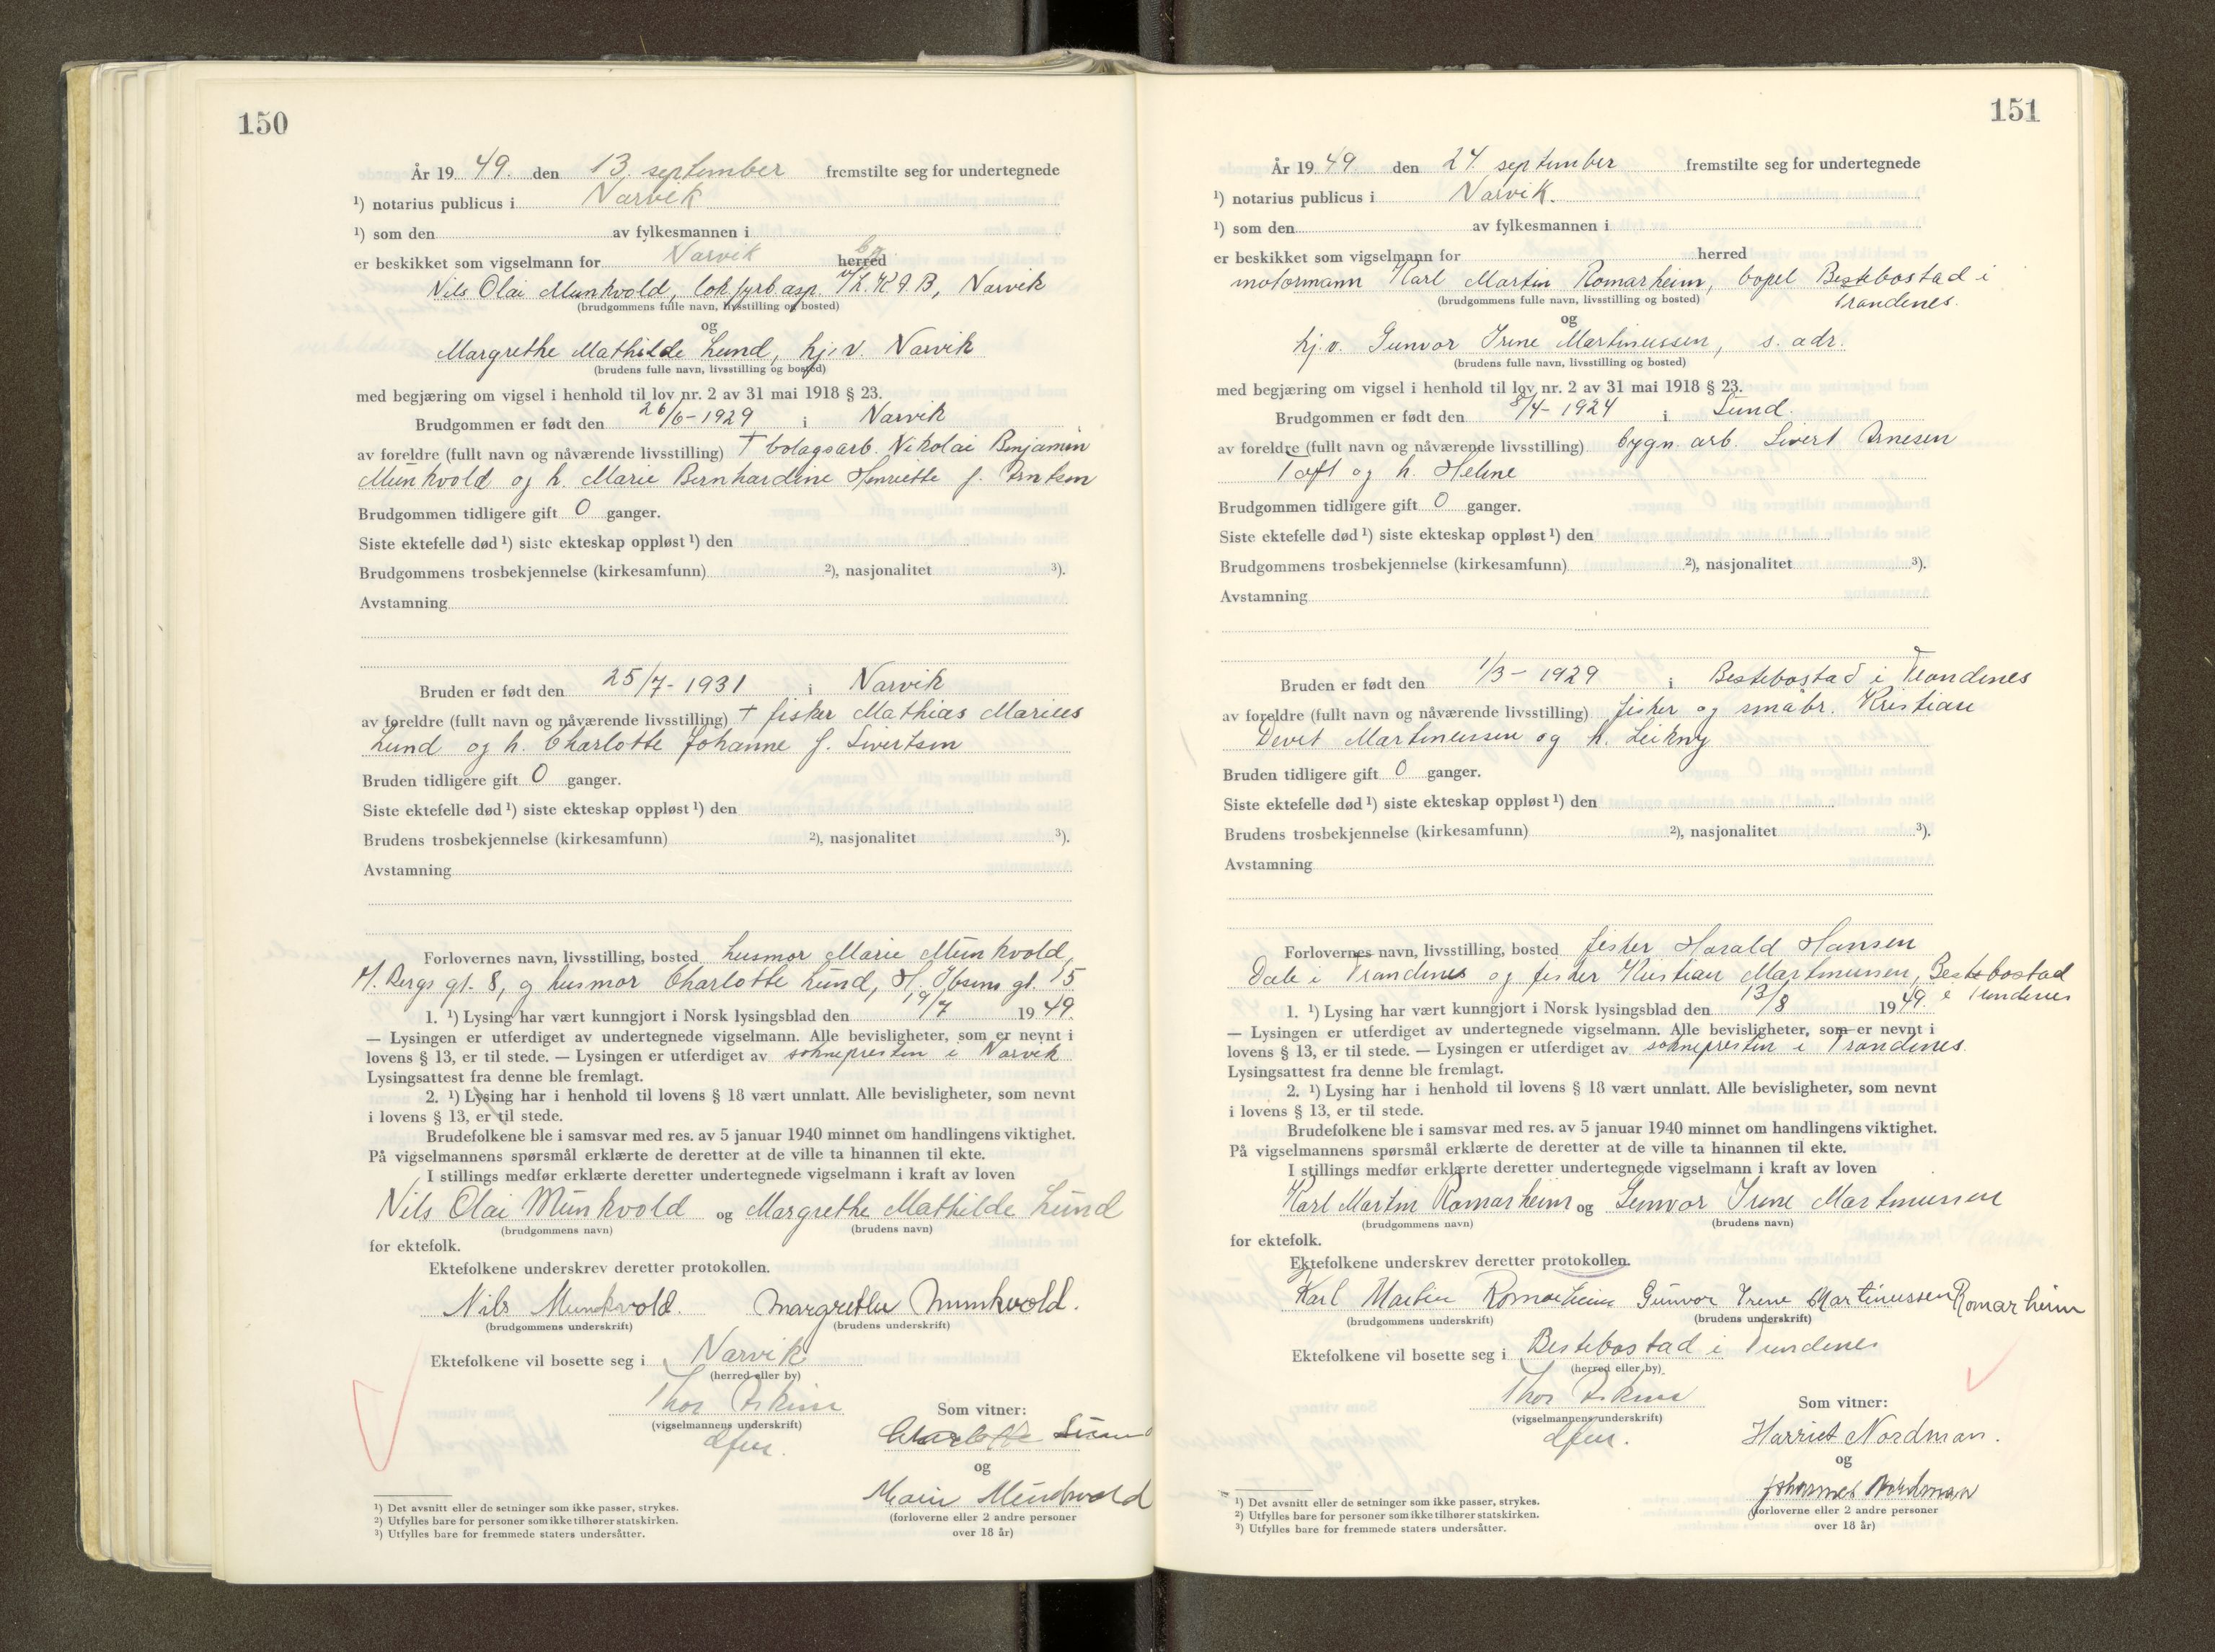 150
År 19 49. den 13. september fremstilte seg for undertegnede
¹) notarius publicus i Narvik
¹) som den av fylkesmannen i
er beskikket som vigselmann for Narvik herred by
Nils Olai Munkvold, lok.fyrb.asp. v/L.K.A.B, Narvik
(brudgommens fulle navn, livsstilling og bosted)
og
Margrethe Mathilde Lund, hj.v. Narvik
(brudens fulle navn, livsstilling og bosted)
med begjæring om vigsel i henhold til lov nr. 2 av 31 mai 1918 § 23.
Brudgommen er født den 26/6-1929 i Narvik
av foreldre (fullt navn og nåværende livsstilling) † bolagsarb. Nikolai Benjamin
Munkvold og h. Marie Bernhardine Henriette f. Arntsen
Brudgommen tidligere gift 0 ganger.
Siste ektefelle død ¹) siste ekteskap oppløst ¹) den
Brudgommens trosbekjennelse (kirkesamfunn) ²), nasjonalitet ³).
Avstamning
Bruden er født den 25/7-1931 i Narvik
av foreldre (fullt navn og nåværende livsstilling) † fisker Mathias Marius
Lund og h. Charlotte Johanne f. Sivertsen
Bruden tidligere gift 0 ganger.
Siste ektefelle død ¹) siste ekteskap oppløst ¹) den
Brudens trosbekjennelse (kirkesamfunn) ²), nasjonalitet ³).
Avstamning
Forlovernes navn, livsstilling, bosted husmor Marie Munkvold,
H. Bergs gt. 8, og husmor Charlotte Lund, H. Ibsens gt. 15
1. ¹) Lysing har vært kunngjort i Norsk lysingsblad den 19/7 19 49.
— Lysingen er utferdiget av undertegnede vigselmann. Alle bevisligheter, som er nevnt i
lovens § 13, er til stede. — Lysingen er utferdiget av sokneprestin i Narvik
Lysingsattest fra denne ble fremlagt.
2. ¹) Lysing har i henhold til lovens § 18 vært unnlatt. Alle bevisligheter, som nevnt
i lovens § 13, er til stede.
Brudefolkene ble i samsvar med res. av 5 januar 1940 minnet om handlingens viktighet.
På vigselmannens spørsmål erklærte de deretter at de ville ta hinannen til ekte.
I stillings medfør erklærte deretter undertegnede vigselmann i kraft av loven
Nils Olai Munkvold og Margrethe Mathilde Lund
(brudgommens navn) (brudens navn)
for ektefolk.
Ektefolkene underskrev deretter protokollen.
Nils Munkvold. Margrethe Munkvold.
(brudgommens underskrift) (brudens underskrift)
Ektefolkene vil bosette seg i Narvik
(herred eller by)
Thor
(vigselmannens underskrift)
dfm.
Som vitner:
Charlotte Lund
og
Marie Munkvold
(forloverne eller 2 andre personer
over 18 år)
¹) Det avsnitt eller de setninger som ikke passer, strykes.
²) Utfylles bare for personer som ikke tilhører statskirken.
³) Utfylles bare for fremmede staters undersåtter.
151
År 19 49. den 24. september fremstilte seg for undertegnede
¹) notarius publicus i Narvik.
¹) som den av fylkesmannen i
er beskikket som vigselmann for herred
motormann Karl Martin Romarheim, bopel Bestebostad i
Trandenes.
(brudgommens fulle navn, livsstilling og bosted)
og
hj.v. Gunvor Irene Martinussen, s. adr.
(brudens fulle navn, livsstilling og bosted)
med begjæring om vigsel i henhold til lov nr. 2 av 31 mai 1918 § 23.
Brudgommen er født den 8/4-1924 i Sund.
av foreldre (fullt navn og nåværende livsstilling) bygn. arb. Sivert Arnesen
Toft og h. Helene
Brudgommen tidligere gift 0 ganger.
Siste ektefelle død ¹) siste ekteskap oppløst ¹) den
Brudgommens trosbekjennelse (kirkesamfunn) ²), nasjonalitet ³).
Avstamning
Bruden er født den 1/3-1929 i Bestebostad i Trandenes
av foreldre (fullt navn og nåværende livsstilling) fisker og småbr. Kristian
Devet Martinussen og h. Leikny
Bruden tidligere gift 0 ganger.
Siste ektefelle død ¹) siste ekteskap oppløst ¹) den
Brudens trosbekjennelse (kirkesamfunn) ²), nasjonalitet ³).
Avstamning
Forlovernes navn, livsstilling, bosted fisker Harald Hansen
Dale i Trandenes og fisker Kristian Martinussen, Bestebostad
i Trandenes
1. ¹) Lysing har vært kunngjort i Norsk lysingsblad den 13/8 19 49.
— Lysingen er utferdiget av undertegnede vigselmann. Alle bevisligheter, som er nevnt i
lovens § 13, er til stede. — Lysingen er utferdiget av sokneprestin i Trandenes.
Lysingsattest fra denne ble fremlagt.
2. ¹) Lysing har i henhold til lovens § 18 vært unnlatt. Alle bevisligheter, som nevnt
i lovens § 13, er til stede.
Brudefolkene ble i samsvar med res. av 5 januar 1940 minnet om handlingens viktighet.
På vigselmannens spørsmål erklærte de deretter at de ville ta hinannen til ekte.
I stillings medfør erklærte deretter undertegnede vigselmann i kraft av loven
Karl Martin Romarheim og Gunvor Irene Martinussen
(brudgommens navn) (brudens navn)
for ektefolk.
Ektefolkene underskrev deretter protokollen.
Karl Martin Romarheim Gunvor Irene Martinussen Romarheim
(brudgommens underskrift) (brudens underskrift)
Ektefolkene vil bosette seg i Bestebostad i Trandenes
(herred eller by)
Thor
(vigselmannens underskrift)
dfm.
Som vitner:
Harriet Nordman.
og
Johannes Nordman
(forloverne eller 2 andre personer
over 18 år)
¹) Det avsnitt eller de setninger som ikke passer, strykes.
²) Utfylles bare for personer som ikke tilhører statskirken.
³) Utfylles bare for fremmede staters undersåtter.